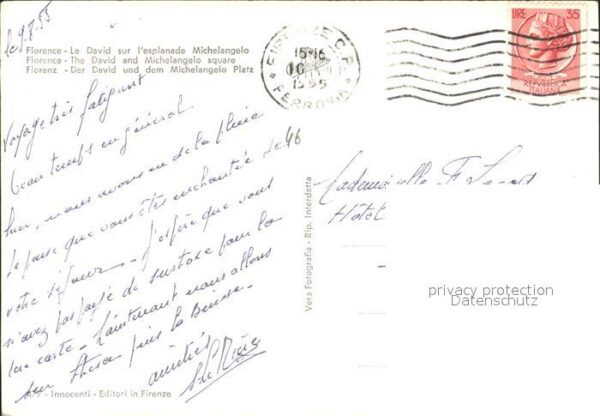 le 9.8.55
Florence - Le David sur l'esplanade Michelangelo
Florence - The David and Michelangelo square
Florenz - Der David und dem Michelangelo Platz
Voyage très fatigant
beau temps en général
hier, nous avons eu de la pluie
Je pense que vous êtes enchantée de
votre séjour - J'espère que vous
n'avez pas payé de surtaxe pour la
carte - Maintenant nous allons
sur puis la Suisse -
amitiés
A/7 - Innocenti - Editori in Firenze
Vera Fotografia - Rip. Interdetta
46
FIRENZE C.P.
15-16
10
1955
FERROVIA
LIRE 35
REPVBBLICA
ITALIANA
Mademoiselle F.
Hôtel
privacy protection
Datenschutz